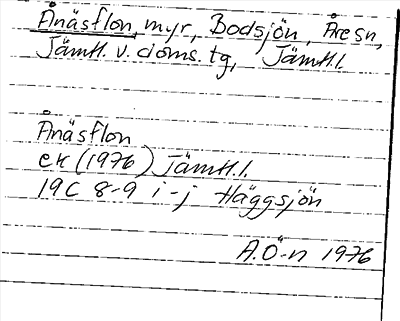 Ånäsflon, myr, Bodsjön, Åresn,
Jämtl. v. doms. tg, Jämtl.l.
Ånäsflon
ek (1976) Jämtl.l.
19C 8-9 i-j Häggsjön
A.Ö-n 1976